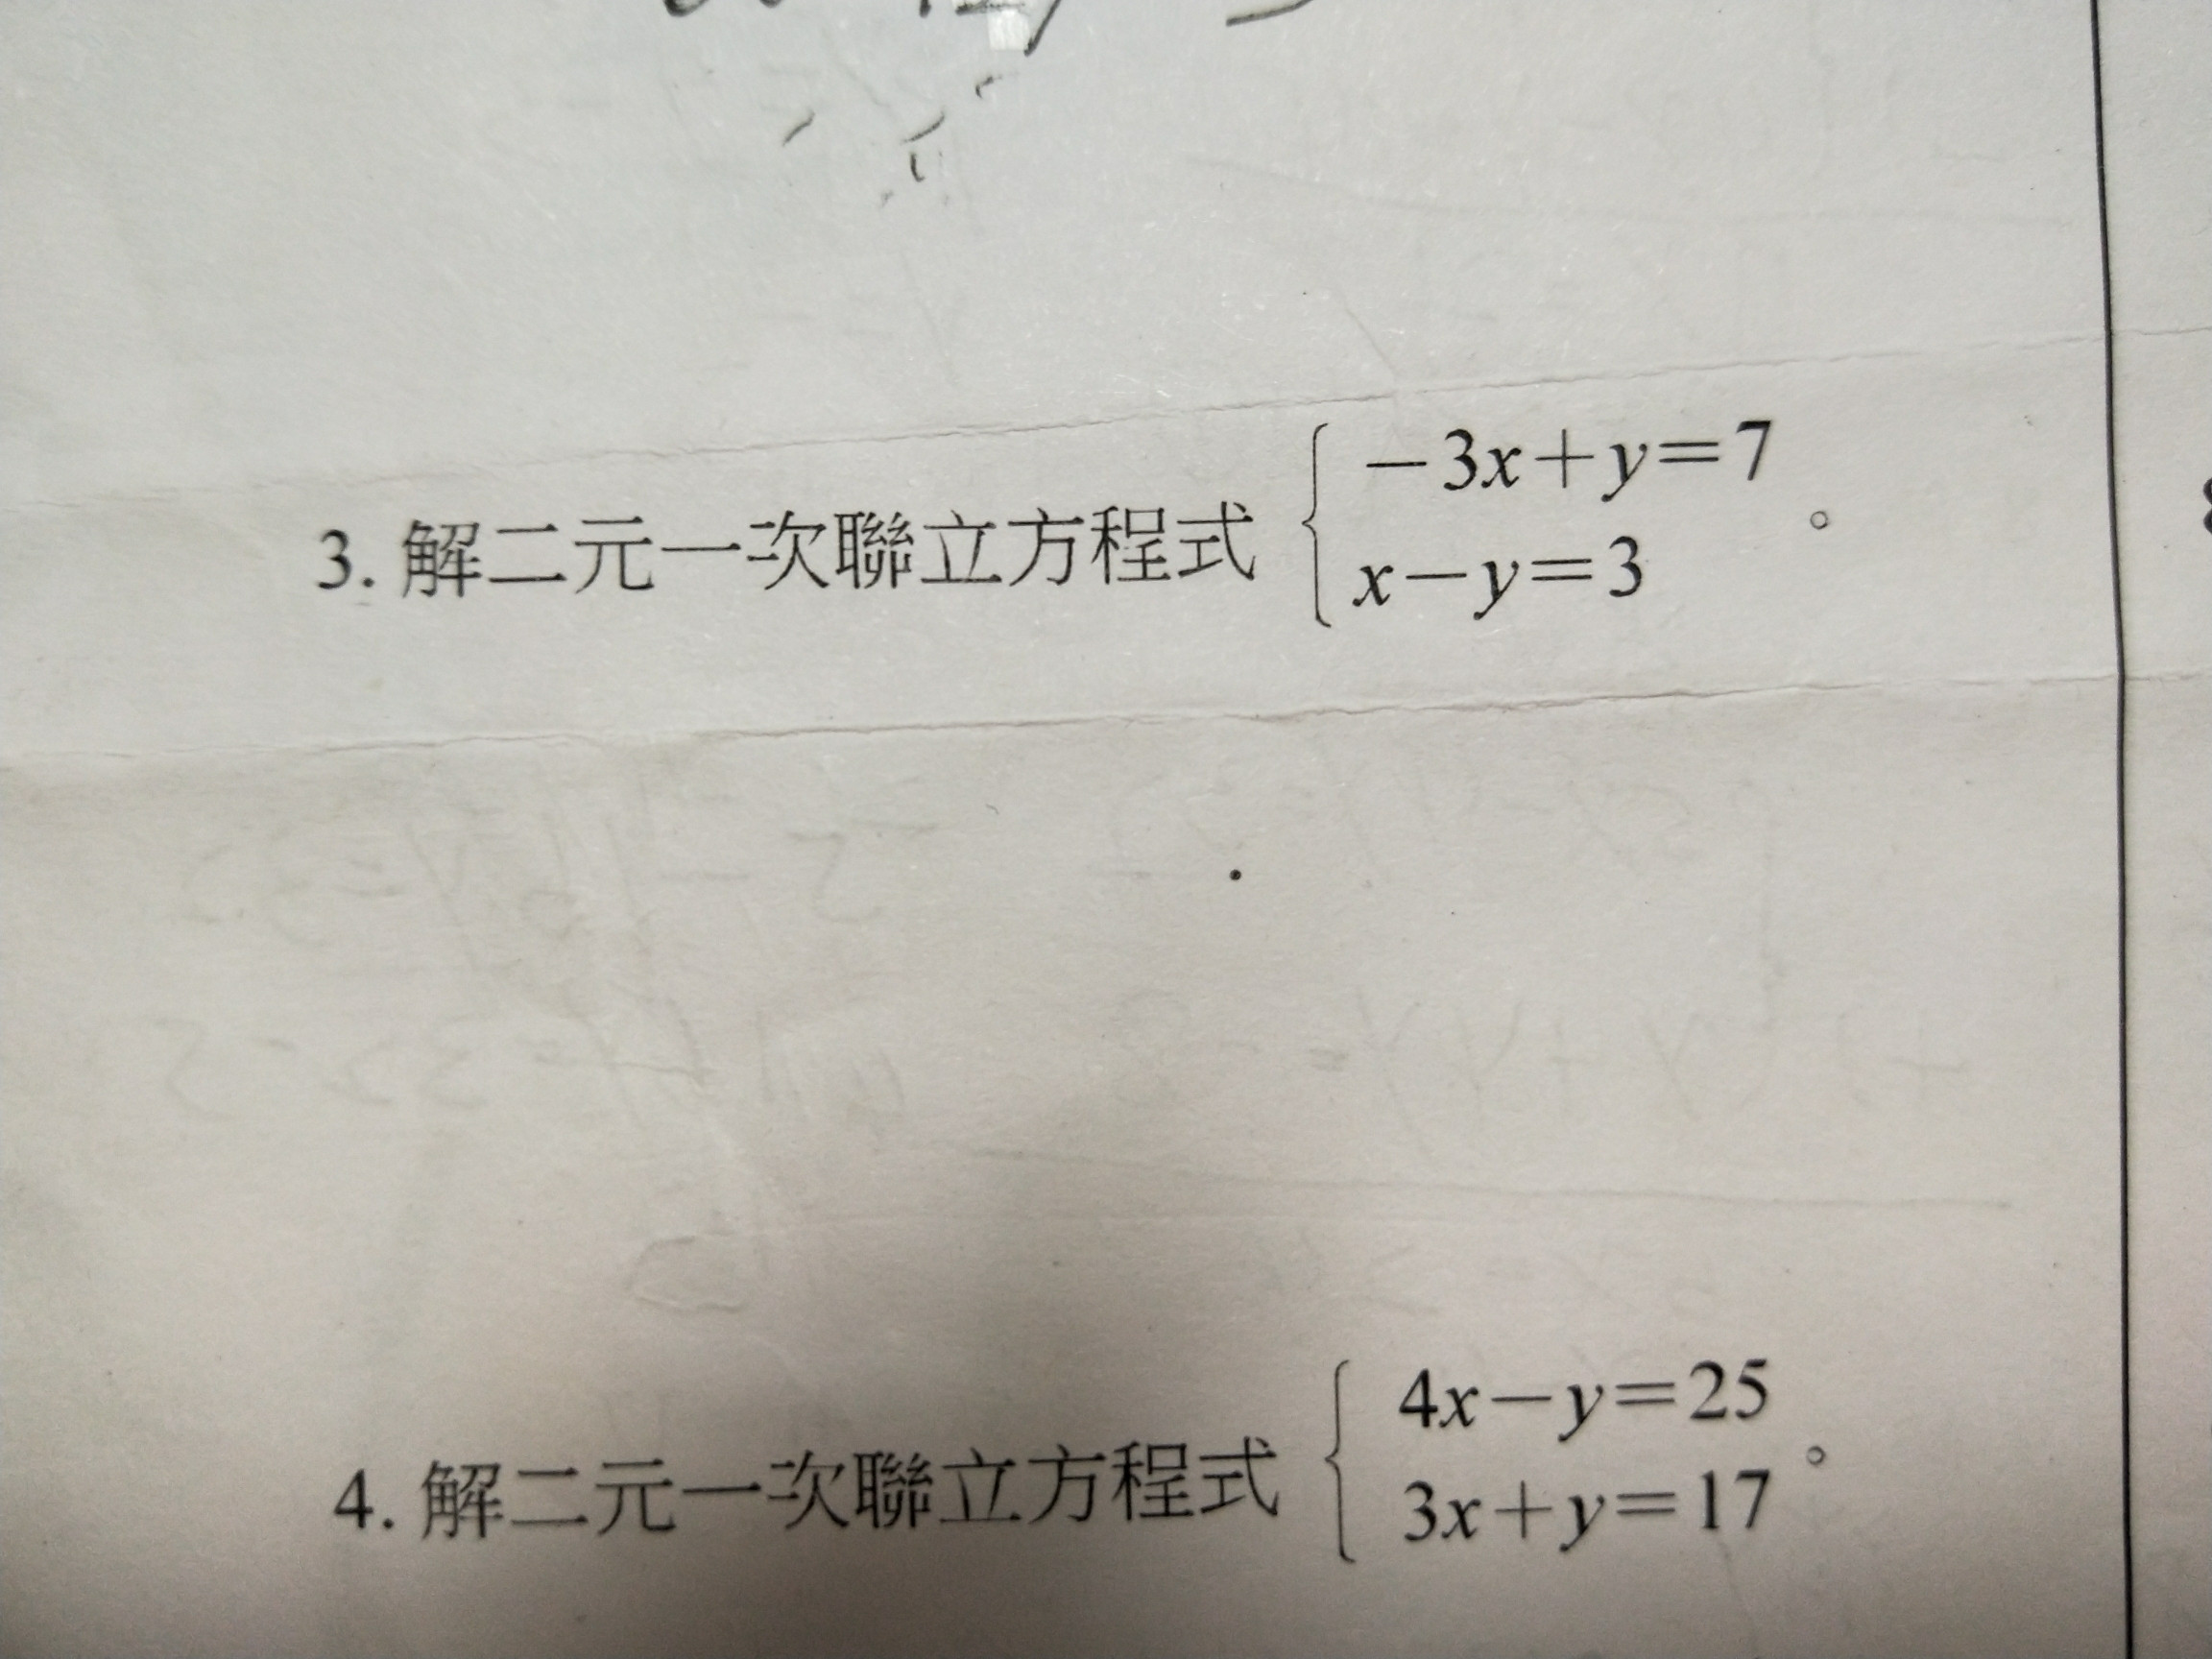 3. 解二元一次聯立方程式 { -3x+y=7
x-y=3 。
4. 解二元一次聯立方程式 { 4x-y=25
3x+y=17 。